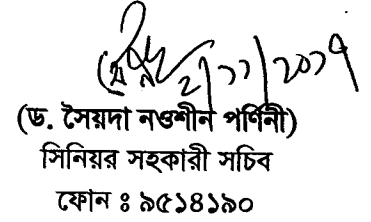 ২/১১/২০১৭
(ড. সৈয়দা নওশীন পর্ণিনী)
সিনিয়র সহকারী সচিব
ফোন ঃ ৯৫১৪১৯০